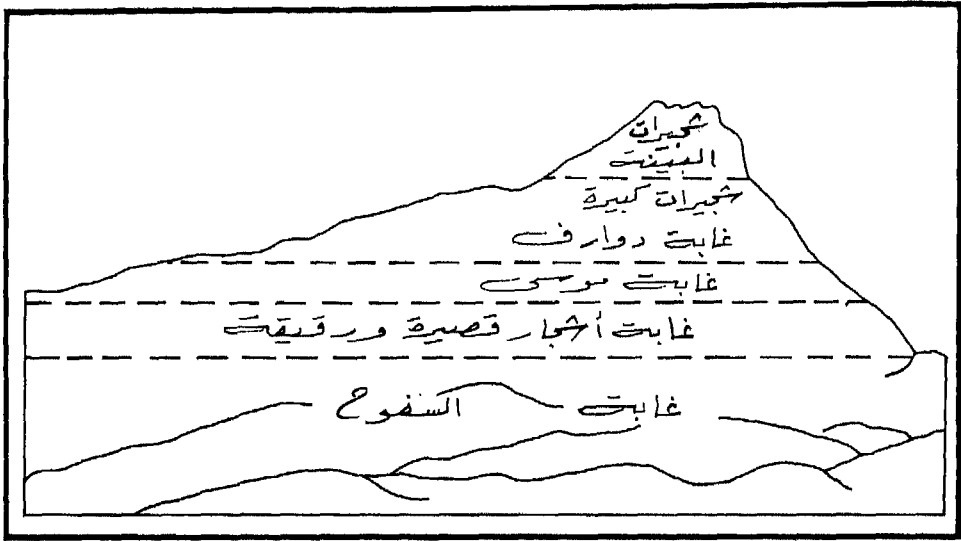 شجيرات
البينت
شجيرات كبيرة
غابة دوارف
غابة موسى
غابة أشجار قصيرة ورقيقة
غابة السفوح